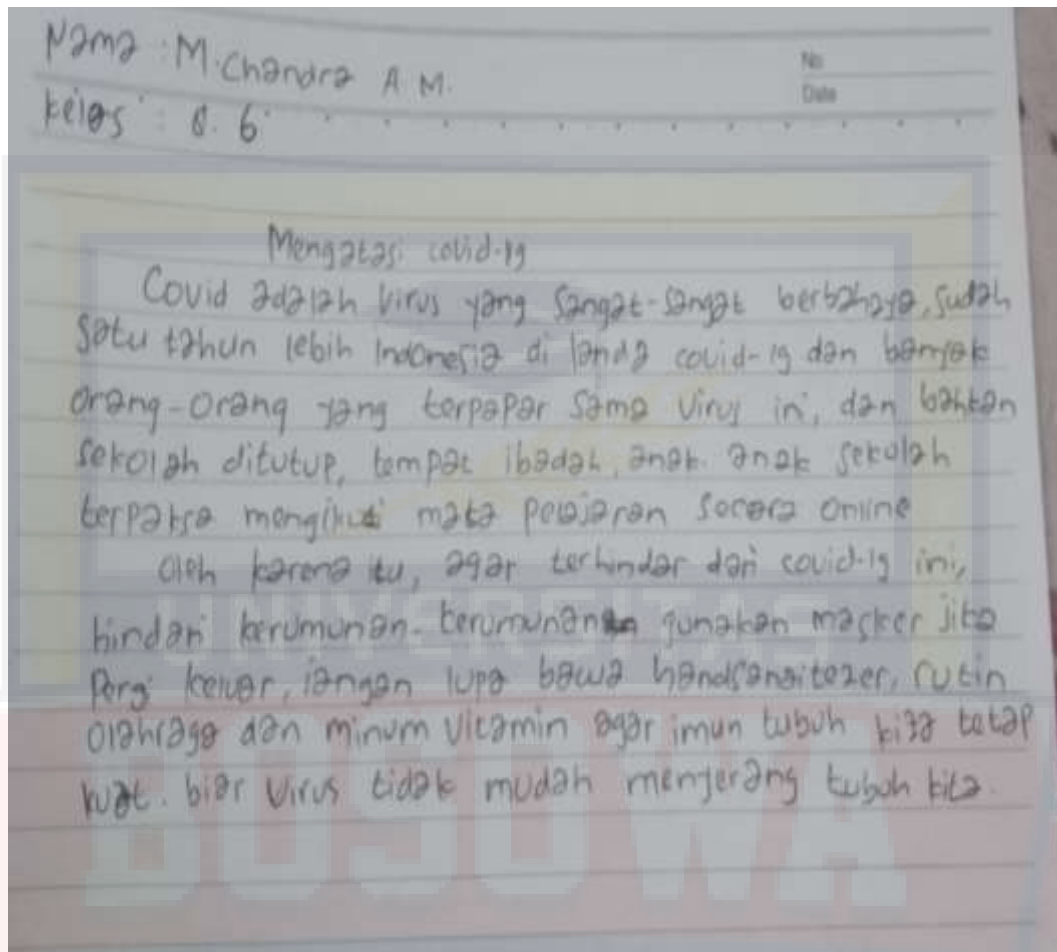 Nama : M. Chandra A M.
No
Date
kelas : 8. 6
Mengatasi covid-19
Covid adalah virus yang sangat-sangat berbahaya, sudah
satu tahun lebih Indonesia di landa covid-19 dan banyak
orang-orang yang terpapar sama virus ini, dan bahkan
sekolah ditutup, tempat ibadah, anak-anak sekolah
terpaksa mengikuti mata pelajaran secara online
oleh karena itu, agar terhindar dari covid-19 ini,
hindari kerumunan-kerumunan gunakan masker jika
pergi keluar, jangan lupa bawa handsanaitezer, rutin
olahraga dan minum vitamin agar imun tubuh kita tetap
kuat. biar virus tidak mudah menyerang tubuh kita.
UNIVERSITAS
BOSOWA